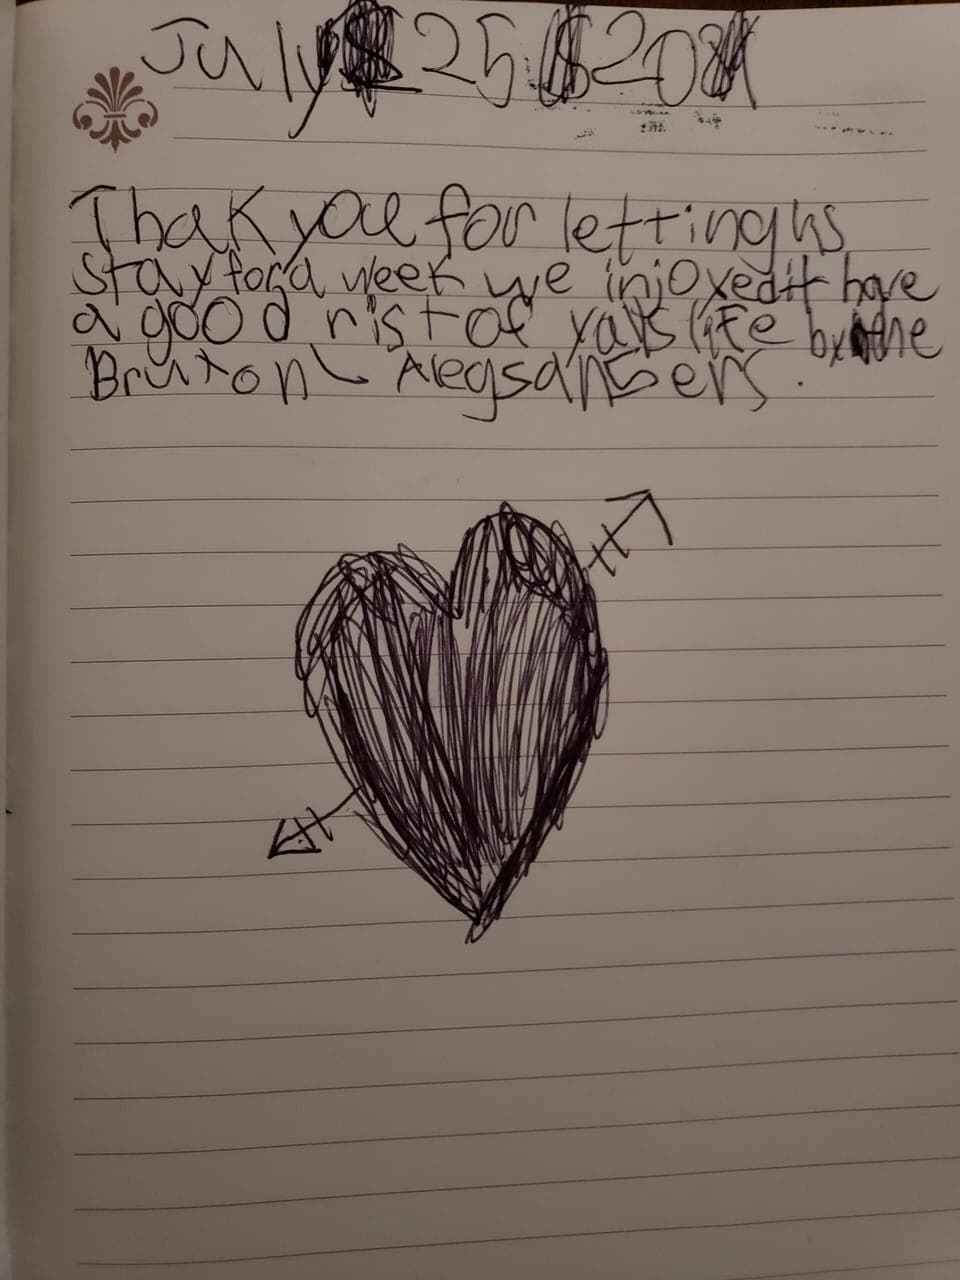 July 25 20
Thak you for letting us
stay for a week we injoyed it have
a good rist of yalls life by the
Bruton - Alegsanders.